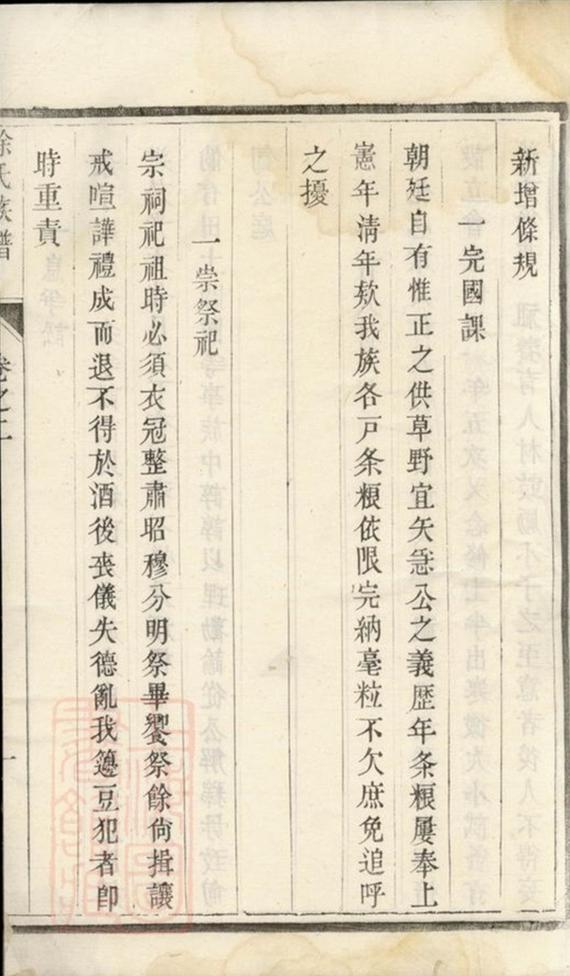 新增條規
一完國課
朝廷自有惟正之供草野宜矢急公之義歷年条粮屢奉上
憲年清年欵我族各戸条粮依限完納毫粒不欠庶免追呼
之擾
一崇祭祀
宗祠祀祖時必須衣冠整肅昭穆分明祭畢饗祭餘尙揖讓
戒喧譁禮成而退不得於酒後喪儀失德亂我籩豆犯者卽
時重責
徐氏族譜
卷之二
一